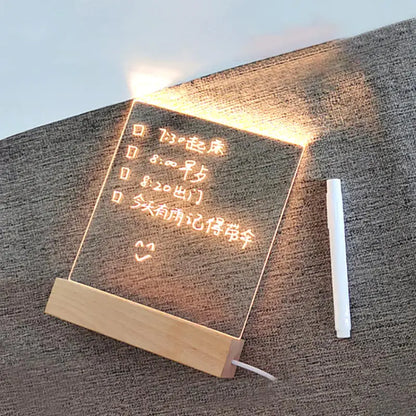 □ 7:30起床
□ 8:00早点
□ 8:20出门
□ 今天有雨记得带伞